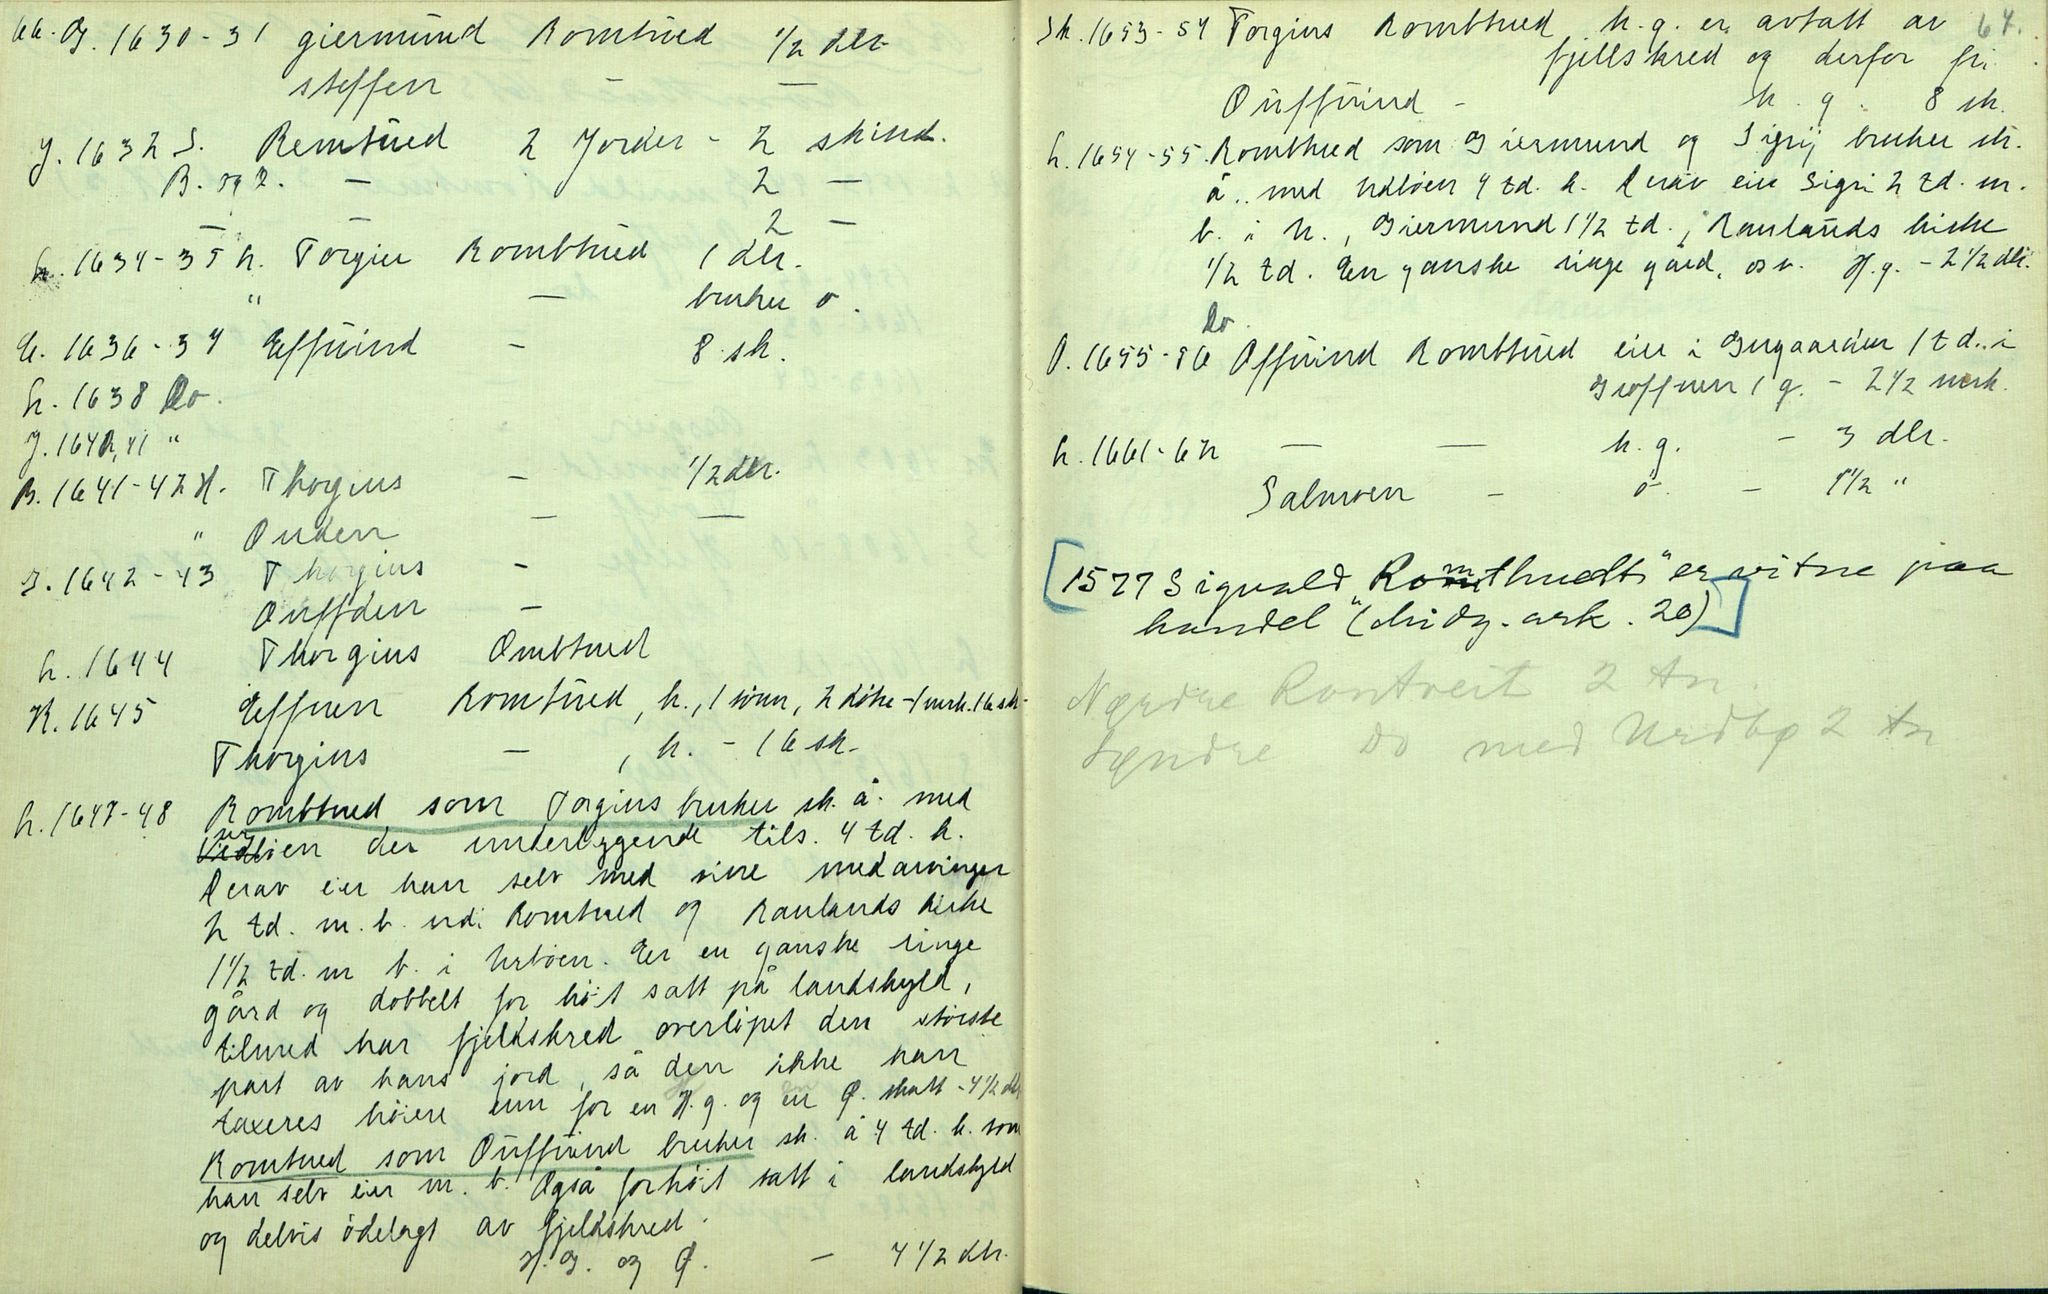 kk. G. 1630-31 giermünd Romtüed 1/2 dlr
steffen — —
J. 1632 S. Remtüed 2 Jorder - 2 skind.
B. og L. — 2 —
— — 2 —
h. 1634-35 h. Torgiu Rombtüed 1 dlr.
" — bruker o.
E. 1636-37 Effüind - 8 sk.
h. 1638 Do.
J. 1640,41 "
B. 1641-42 H. Thorgius - 1/2 dlr.
" Ouden — —
S. 1642-43 Thorgius -
Ouffden -
h. 1644 Thorgius Ombtued
K. 1645 Effuen Romtüed, k., 1 sönn, 2 döke - 1 mrk. 16 sk.
Thorgius — , k. - 16 sk.
h. 1647-48 Rombtued som Torgius bruker sk. å. med
urböen der underliggende tils. 4 td. k.
Derav eier han selv med sine medarvinger
2 td. m. b. udi Romtued og Raulands kirke
1 1/2 td. m b. i Urböen. Er en ganske ringe
gård og dobbelt for höit satt på landskyld,
tilmed har fjeldskred overlöpet den störste
part av hans jord, så den ikke kan
taxeres höiere enn for en H.g. og en Ø. skatt - 4 1/2 dlr
Romtued som Oüffüind bruker sk. å 4 td. k. som
han selv eier m. b. Også forhöit satt i landskyld
og delvis ödelagt av fjeldskred.
H. G. og Ø. — 4 1/2 dlr.
Sk. 1653-54 Torgius Rombtued h. g. er avtatt av 64.
fjellskred og derfor fri.
Oüffüind - h. g. 8 sk.
h. 1654-55. Rombtued som Giermund og Sigrij bruker sk.
å.. med Urdböen 4 td. k. Derav eier Sigri 2 td. m.
b. i k., Giermund 1 1/2 td., Raulands kirke
1/2 td. Er en ganske ringe gård, osv. H.g. - 2 1/2 dlr.
Do.
O. 1655-56 Offüind Rombtüed eier i 1 td.. i
1 g. - 2 1/2 mrk.
h. 1661-62 — — h. g. - 3 dlr.
Salmoen - ö. - 1 1/2 "
[1577 Siguald "Romthuedt" er vitne paa
handel" (hidz. ark. 20)]
Nordre Romtveit 2 tn.
Søndre Do med Urdbø 2 tn